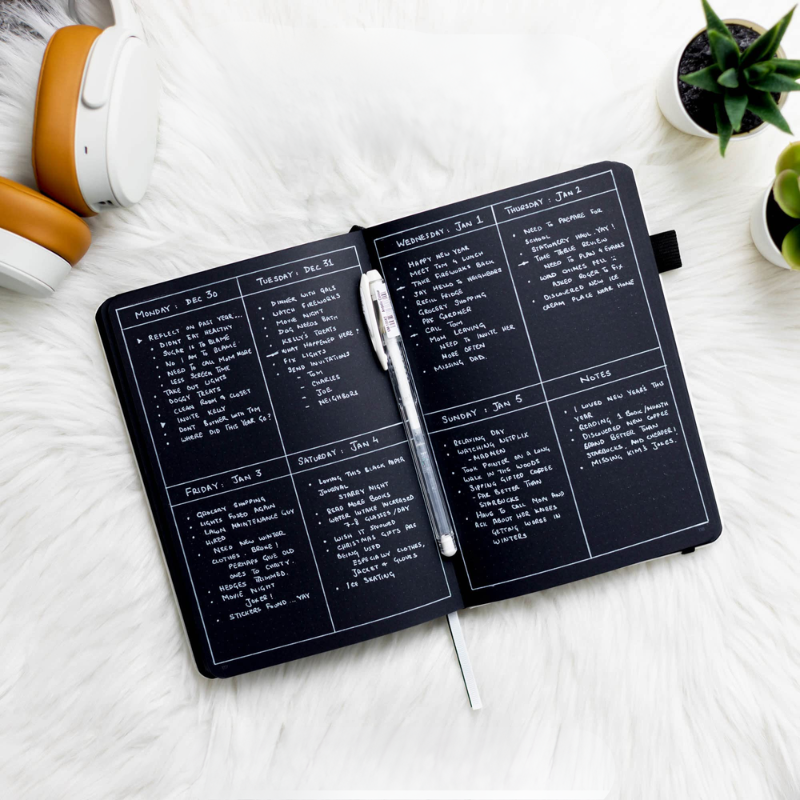 MONDAY : DEC 30
REFLECT ON PAST YEAR...
DIDNT EAT HEALTHY
SUGAR IS TO BLAME
NO I AM TO BLAME
NEED TO CALL MOM MORE
LESS SCREEN TIME
TAKE OUT LIGHTS
DOGGY TREATS
CLEAN ROOM & CLOSET
INVITE KELLY
DON'T BOTHER WITH TOM
WHERE DID THIS YEAR GO?
TUESDAY : DEC 31
DINNER WITH GALS
WATCH FIREWORKS
MOVIE NIGHT
DOG NEEDS BATH
KELLY'S TREATS
WHAT HAPPENED HERE?
FIX LIGHTS
SEND INVITATIONS
- TOM
- CHARLES
- JOE
- NEIGHBORS
WEDNESDAY : JAN 1
HAPPY NEW YEAR
MEET TOM @ LUNCH
TAKE FIREWORKS BACK
SAY HELLO TO NEIGHBORS
REFILL FRIDGE
GROCERY SHOPPING
PAY GARDNER
CALL TOM
MOM LEAVING
NEED TO INVITE HER
MORE OFTEN
MISSING DAD.
THURSDAY : JAN 2
NEED TO PREPARE FOR
SCHOOL
STATIONERY HAUL. YAY!
TIME TABLE REVIEW
NEED TO PLAN 4 EXAMS
WIND CHIMES FELL :(
ASKED ROGER TO FIX
DISCOVERED NEW ICE
CREAM PLACE NEAR HOME
FRIDAY : JAN 3
GROCERY SHOPPING
LIGHTS FUSED AGAIN
LAWN MAINTENANCE GUY
HIRED
NEED NEW WINTER
CLOTHES. BROKE!
PERHAPS GIVE OLD
ONES TO CHARITY.
HEDGES TRIMMED.
MOVIE NIGHT
JOKER!
STICKERS FOUND...YAY
SATURDAY : JAN 4
LOVING THIS BLACK PAPER
JOURNAL
STARRY NIGHT
READ MORE BOOKS
WATER INTAKE INCREASED
7-8 GLASSES/DAY
WISH IT SNOWED
CHRISTMAS GIFTS ARE
BEING USED
ESPECIALLY CLOTHES,
JACKET & GLOVES
ICE SKATING
SUNDAY : JAN 5
RELAXING DAY
WATCHING NETFLIX
- MADMEN
TOOK POINTER ON A LONG
WALK IN THE WOODS
SIPPING GIFTED COFFEE
FAR BETTER THAN
STARBUCKS
HAVE TO CALL MOM AND
ASK ABOUT HER KNEES
GETTING WORSE IN
WINTERS
NOTES
I LOVED NEW YEARS THIS
YEAR
READING 1 BOOK/MONTH
DISCOVERED NEW COFFEE
BRAND BETTER THAN
STARBUCKS. AND CHEAPER!
MISSING KIM'S JOKES.